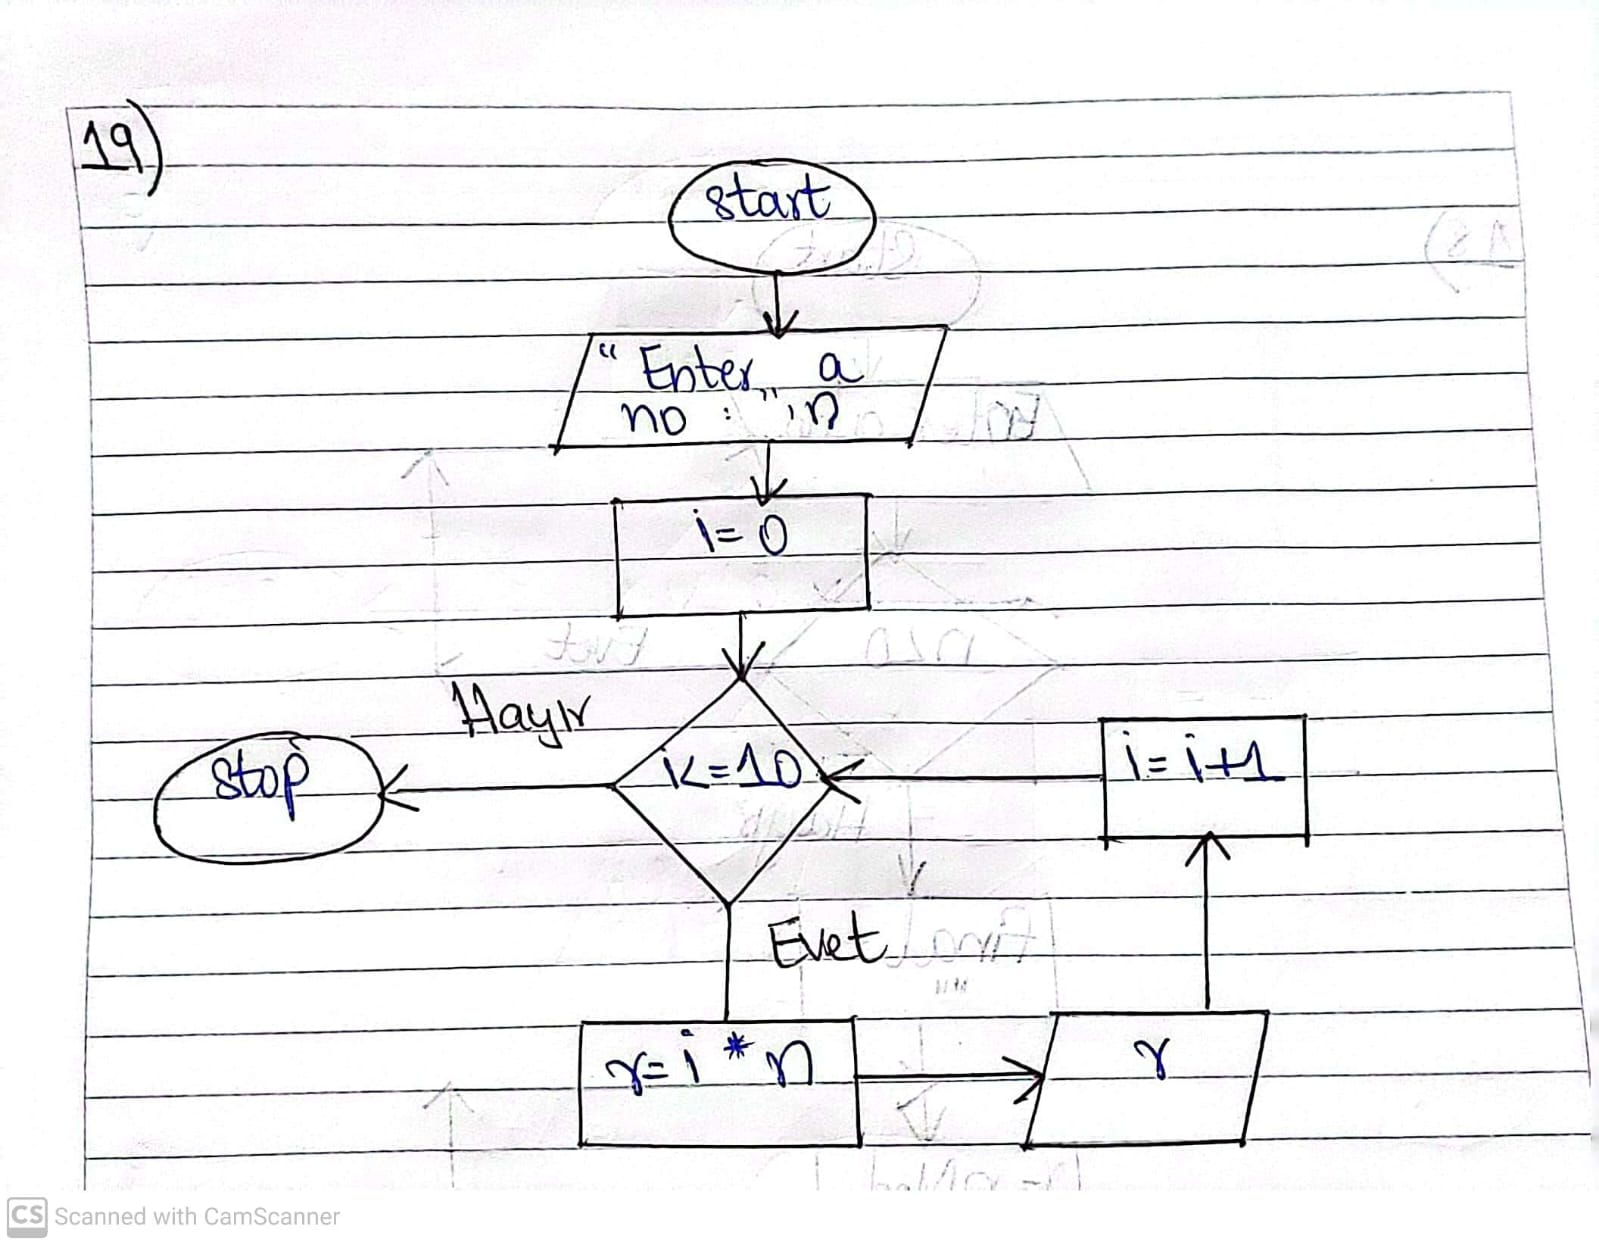 19)
start
" Enter a
no : " , n
i = 0
Hayır
stop
i<=10
i = i+1
Evet
r = i * n
r
CS Scanned with CamScanner